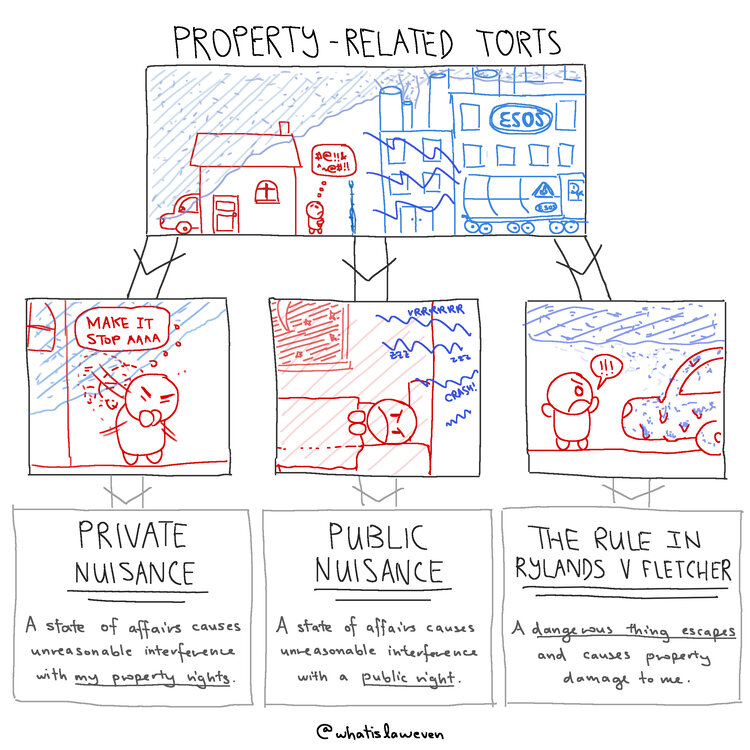 PROPERTY-RELATED TORTS
#@!!&
*~@#!!
ESOS
MAKE IT
STOP AAAA
VRRRRRRR
ZZZ
ZZZ
CRASH!
!!!
PRIVATE
NUISANCE
A state of affairs causes
unreasonable interference
with my property rights.
PUBLIC
NUISANCE
A state of affairs causes
unreasonable interference
with a public right.
THE RULE IN
RYLANDS V FLETCHER
A dangerous thing escapes
and causes property
damage to me.
@whatislaweven